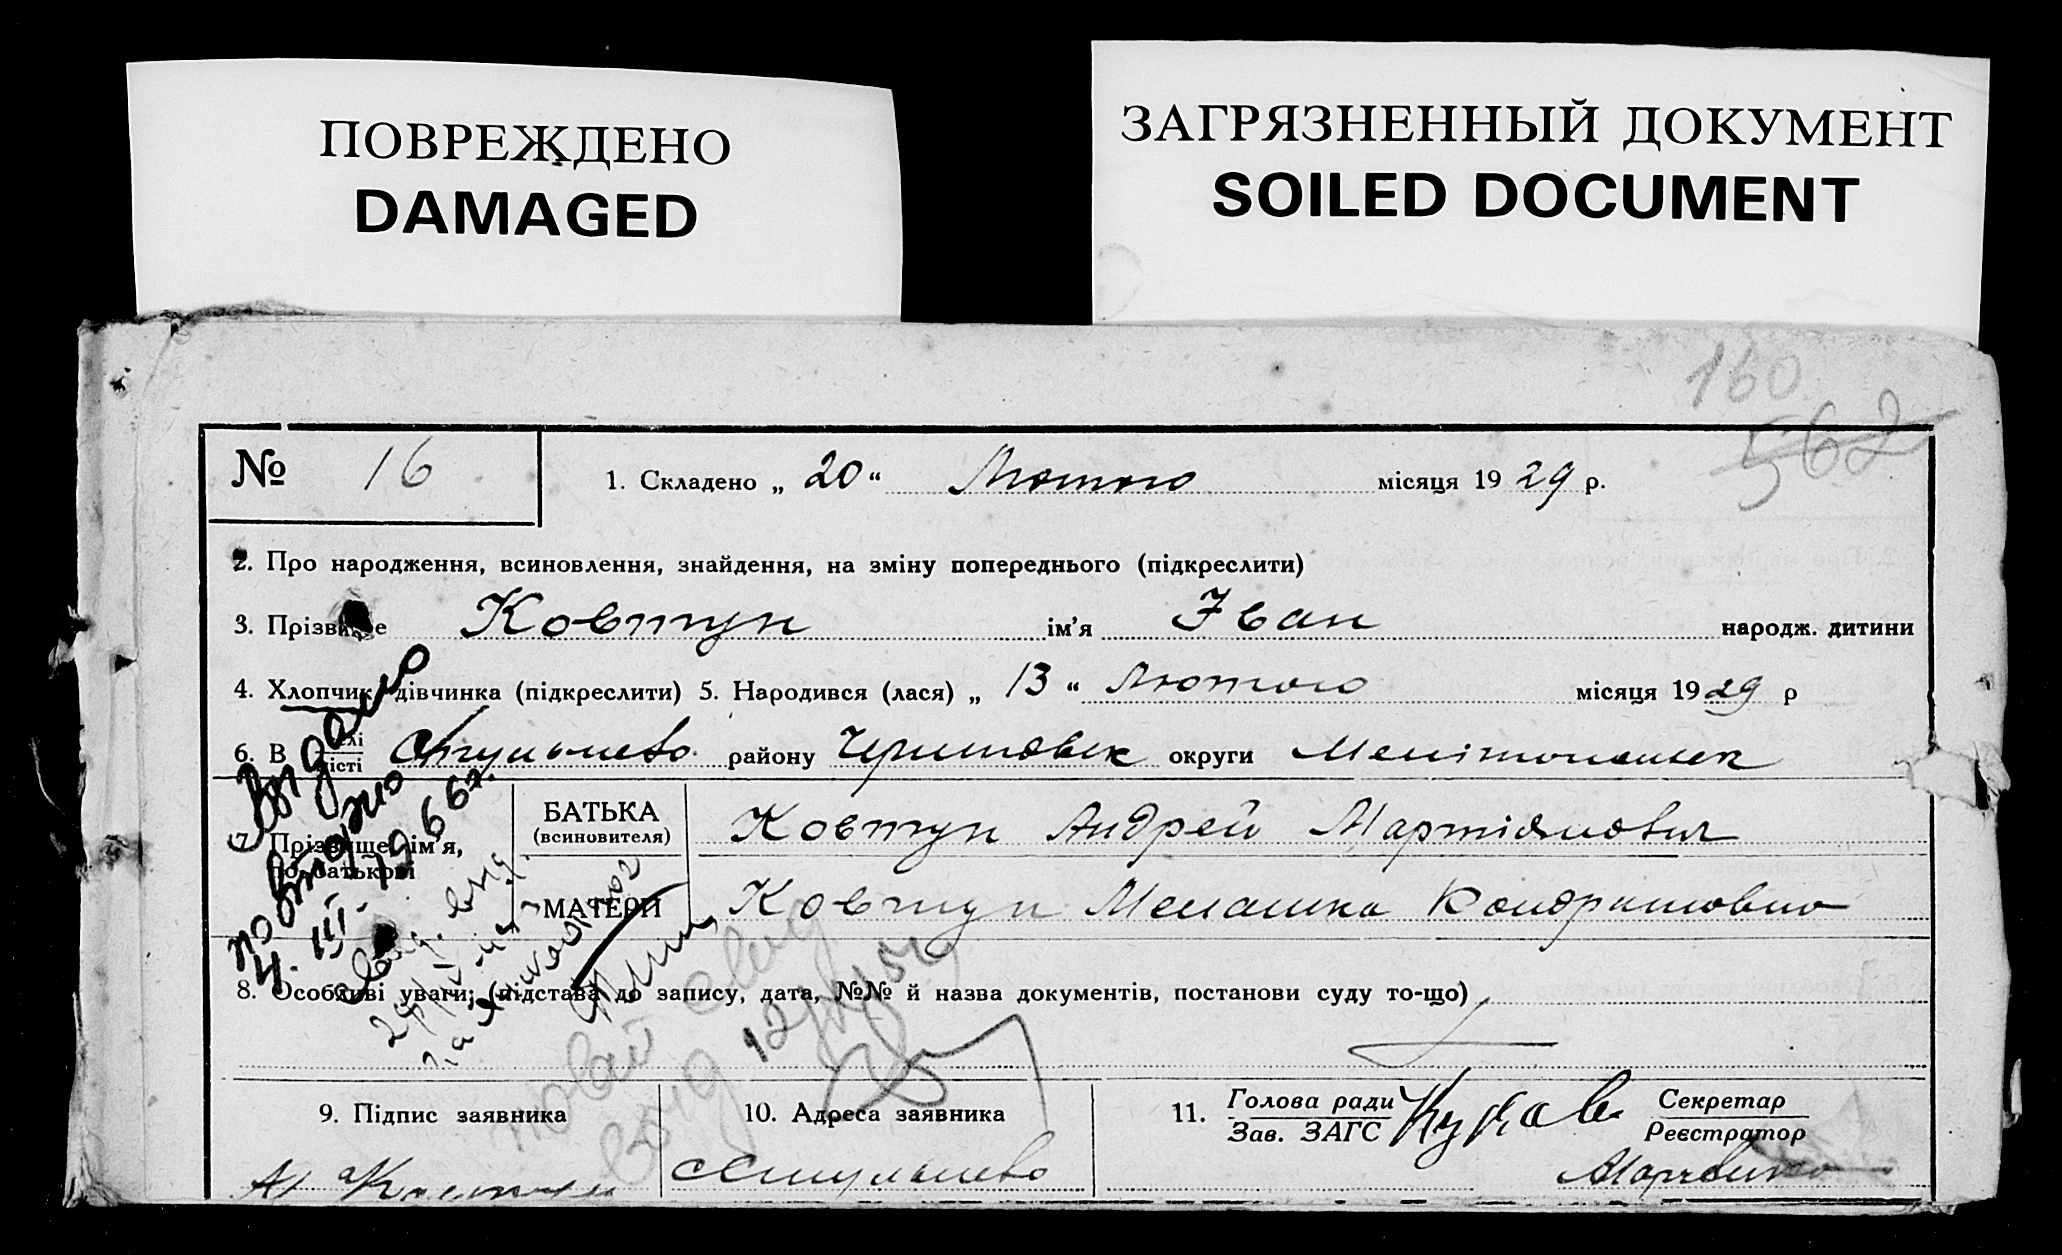 ПОВРЕЖДЕНО
DAMAGED
ЗАГРЯЗНЕННЫЙ ДОКУМЕНТ
SOILED DOCUMENT
160
562
№ 16
1. Складено „ 20 “ Лютого місяця 19 29 р.
2. Про народження, всиновлення, знайдення, на зміну попереднього (підкреслити)
3. Прізвище Ковтун ім’я Іван народж. дитини
4. Хлопчик, дівчинка (підкреслити) 5. Народився (лася) „ 13 “ Лютого місяця 19 29 р
6. В селі місті району округи
7. Прізвище, ім’я, по-батькові
БАТЬКА
(всиновителя)
Ковтун Андрей Мартіянович
МАТЕРИ
Ковтун Меланка
Видано
повторно
4. III. 1966
8. Особливі уваги: (підстава до запису, дата, №№ й назва документів, постанови суду то-що)
9. Підпис заявника
10. Адреса заявника
11. Голова ради
Зав. ЗАГС
Секретар
Реєстратор